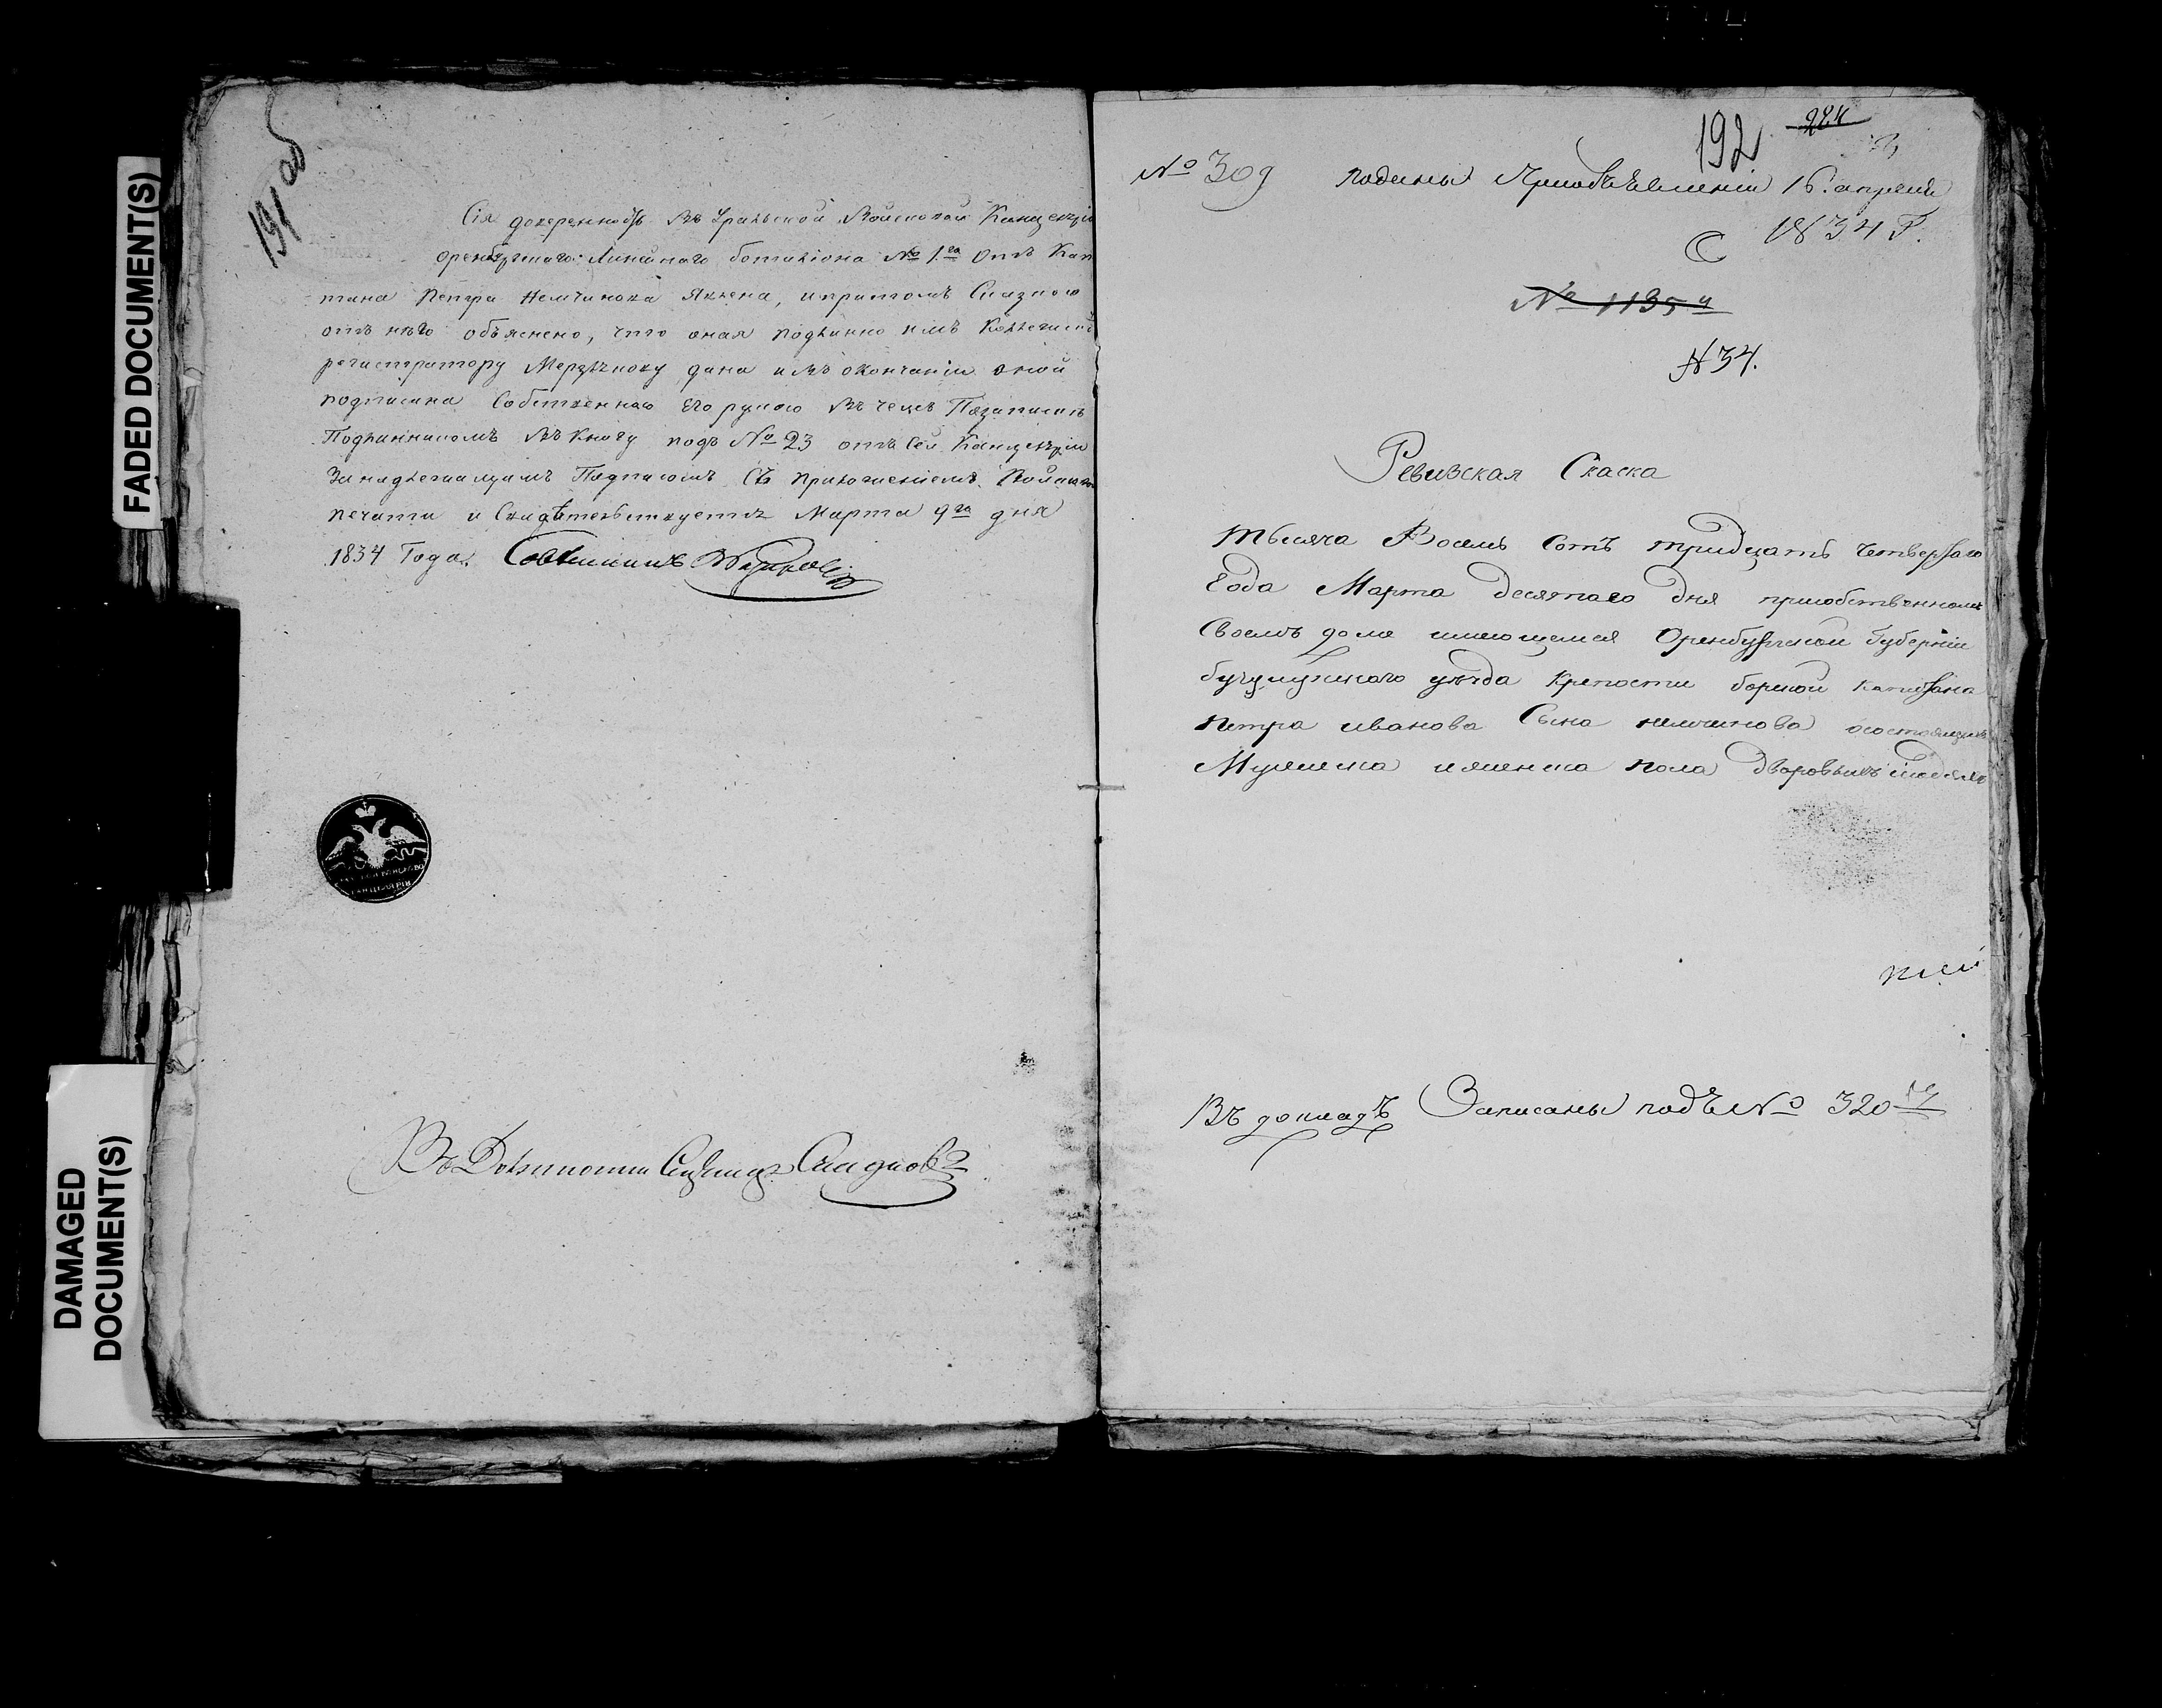 FADED DOCUMENT(S)
DAMAGED
DOCUMENT(S)
191 об
Сія доверенность въ Уральской Войсковой Канцеляріи
оренбургскаго Линейнаго баталіона № 1го Отъ Капи
тана Петра Немчинова Явлена, и притомъ
отъ него объяснено, что оная подлинно имъ Коллежском
регистратору дана и въ окончаніи оной
подписана Собственною Его рукою въ чемъ
въ Книгу подъ № 23 отъ Сей Канцеляріи
За надлежащимъ Подписомъ Съ приложеніемъ
печати и Свидетельствуется Марта 9го дня
1834 Года.
Въ Должности
192 284
№ 309 поданы при объявленіи 16. апреля
1834 Г.
№ 1135
№ 34.
Ревизская Скаска
Тысяча Восемь Сотъ тридцать четвертаго
Года Марта десятаго дня
Своемъ доме имеющемся Оренбургской Губерніи
уезда крепости борской капитана
Петра иванова Сына немчинова о состоящихъ
Мужеска и женска пола дворовыхъ людяхъ
Въ докладъ Записаны подъ № 320